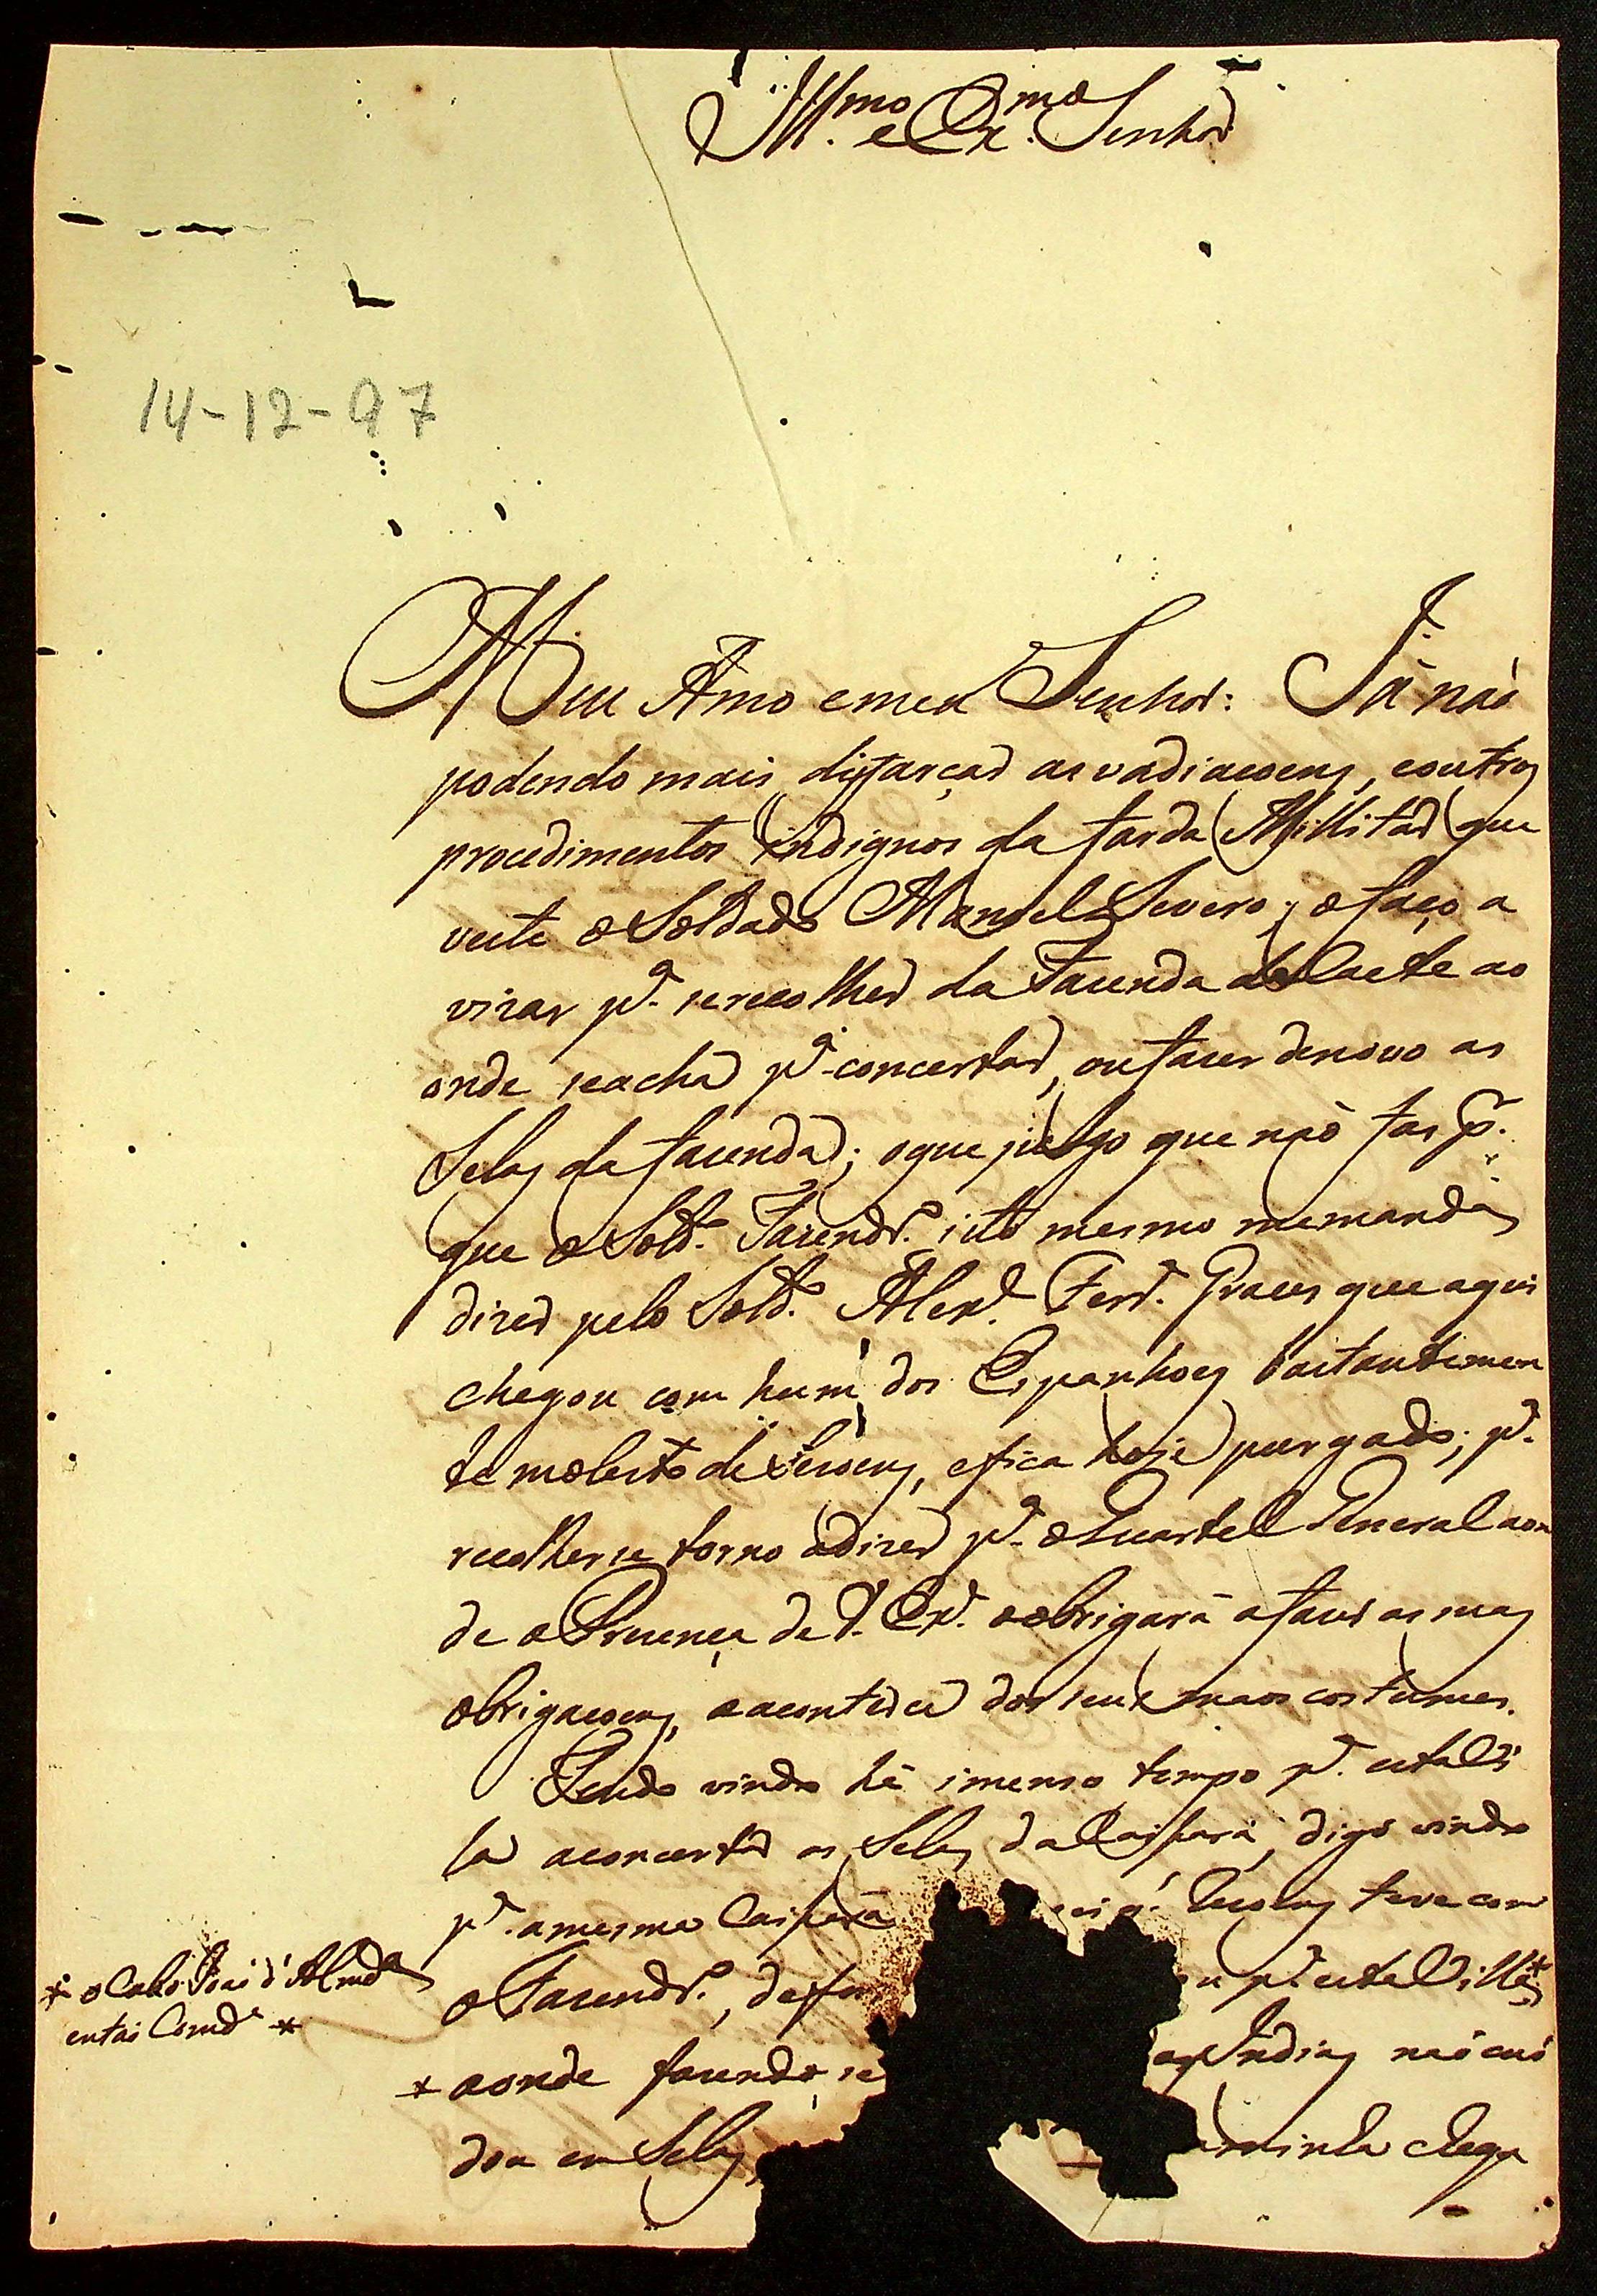 Ill.mo e Ex.mo Senhor
14-12-97
Meu Amo e meu Senhor: Já naõ
podendo mais disfarçar as vadiacoens, e outros
procedimentos indignos da farda Millitar que
veste o Soldado Manoel Severo; o faço a
vizar p.a se recolher da Fazenda de Caete ao
onde se acha p.a concertar, ou fazer denovo as
Selas da fazenda; o que julgo que naõ faz p.r
que o Sold.o Fazendr.o isto mesmo me manda
dizer pelo Sold.o Alex.e Ferr.a que aqui
chegou com hum dos Espanhoes bastantemen
te molesto de Sezoens, e fica hoje purgado; p.a
recolherse torno a dizer p.a o Quartel General aon
de a Prezença de V. Ex.a o obrigará a fazer as suas
obrigacoens, e a conter se dos seus maos costumes.
Tendo vindo há imenso tempo p.a esta Vi
la a concertar as Selas da Caissara, digo vindo
p.a a mesma Caissara teve com
o Fazendr.o, p.a esta Villa*
* o Cabo Joaõ d'Almd.a
entaõ Comd.e *
* aonde fazendo se Indias naõ cui
dou em Selas, a minha chega